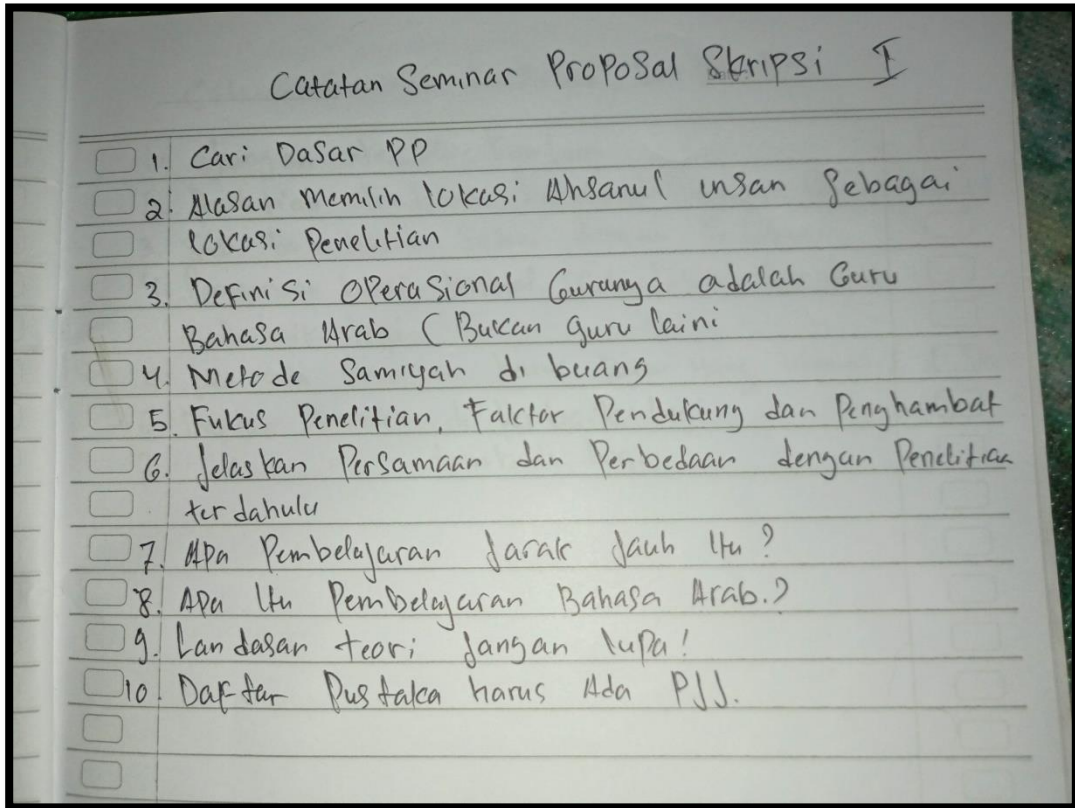 Catatan Seminar Proposal Skripsi I
1. Cari Dasar PP
2. Alasan memilih lokasi Ahsanul insan Sebagai
lokasi Penelitian
3. Definisi Operasional Gurunya adalah Guru
Bahasa Arab (Bukan guru laini
4. Metode Samiyah di buang
5. Fukus Penelitian, Faktor Pendukung dan Penghambat
6. Jelaskan Persamaan dan Perbedaan dengan Penelitian
terdahulu
7. Apa Pembelajaran Jarak Jauh Itu?
8. Apa Itu Pembelajaran Bahasa Arab.?
9. Landasan teori Jangan lupa!
10. Daftar Pustaka harus Ada PJJ.